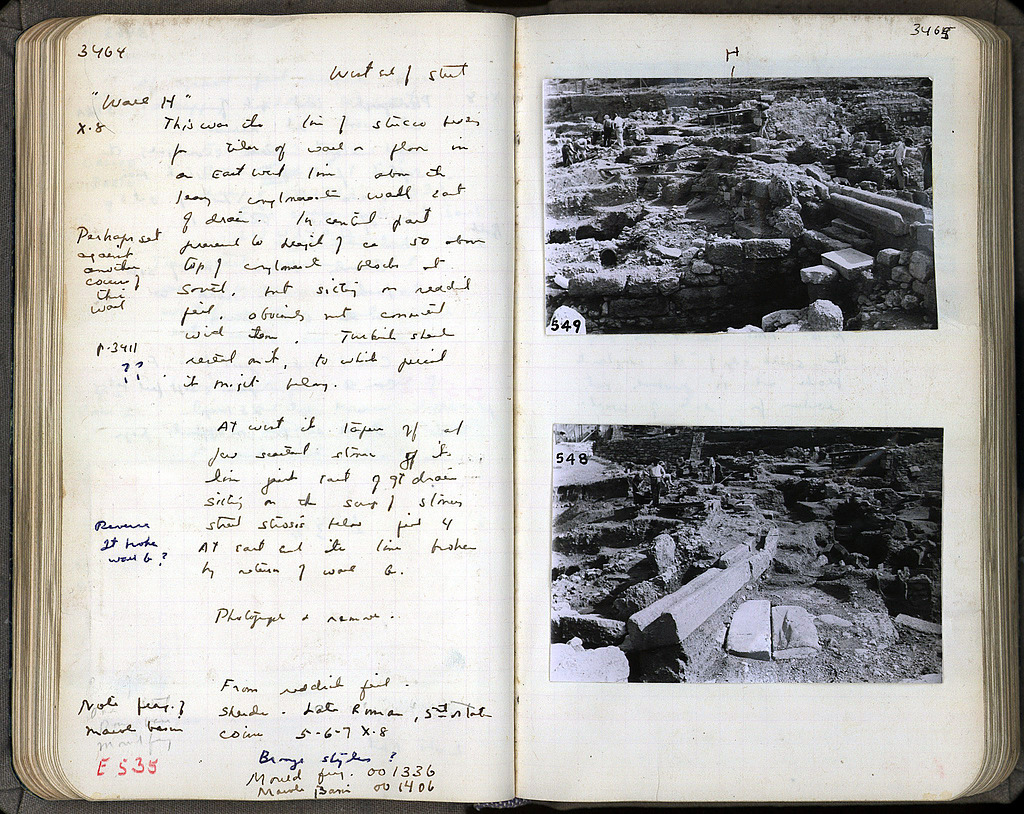 3464
West side of street
"Wall H"
X.8 This was the line of stucco
for tiles of wall or floor in
an East West line above the
heavy conglomerate wall east
of drain. In central part
Perhaps set preserved to height of ca 50 above
against top of conglomerate blocks at
another South, but sitting on reddish
course of fill, obviously not connected
this with them. Turkish sherds
wall
p.3411 rested on it, to which period
?? it might belong.
At west it tapers off at
few scattered stones of its
line just east of gt drain
sitting on the same stones
Reverse street below fill 4
It broke At east end its line broken
wall G? by return of wall G.
Photograph & remove.
From reddish fill.
Note frag. of sherds. Late Roman, 5th or late
marble basin coins 5-6-7 X.8
E 535
Bronze stylus?
Mould frg. 00 1336
Marble Basin 00 1406
3465
H
549
548